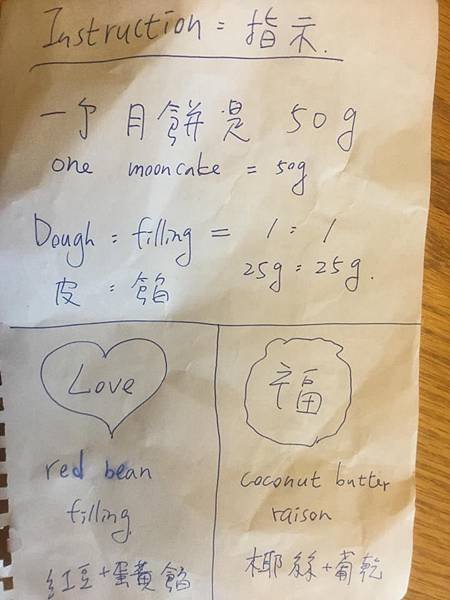 Instruction = 指示.
一个月餅是 50g
one mooncake = 50g
Dough : filling = 1 : 1
皮 : 餡 25g = 25g.
Love
red bean
filling
紅豆+蛋黃餡
福
coconut butter
raison
椰絲+葡乾